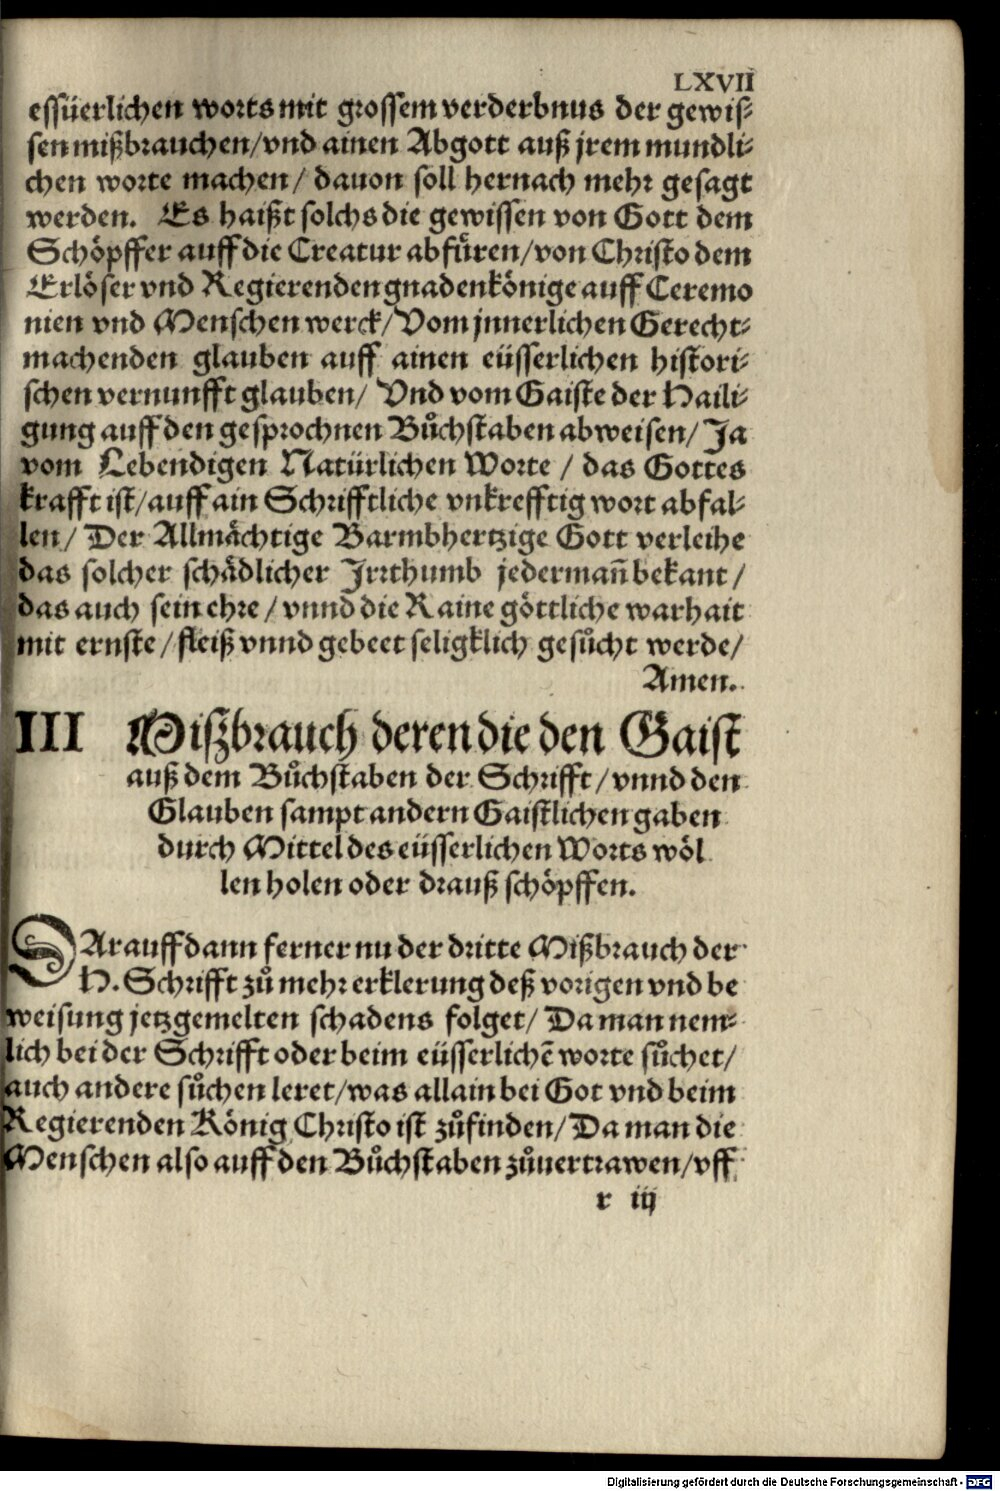 LXVII
essüerlichen worts mit grossem verderbnus der gewis-
sen mißbrauchen/vnd ainen Abgott auß jrem mundli-
chen worte machen/ dauon soll hernach mehr gesagt
werden. Es haißt solchs die gewissen von Gott dem
Schöpffer auff die Creatur abfüren/von Christo dem
Erlöser vnd Regierenden gnadenkönige auff Ceremo
nien vnd Menschen werck/Vom jnnerlichen Gerecht-
machenden glauben auff ainen eüsserlichen histori-
schen vernunfft glauben/ Vnd vom Gaiste der Haili-
gung auff den gesprochnen Bůchstaben abweisen/ Ja
vom Lebendigen Natürlichen Worte / das Gottes
krafft ist/auff ain Schrifftliche vnkrefftig wort abfal-
len/ Der Allmächtige Barmbhertzige Gott verleihe
das solcher schädlicher Irrthumb jedermañ bekant/
das auch sein ehre/ vnnd die Raine göttliche warhait
mit ernste/fleiß vnnd gebeet seligklich gesůcht werde/
Amen.
III Miszbrauch deren die den Gaist
auß dem Bůchstaben der Schrifft/vnnd den
Glauben sampt andern Gaistlichen gaben
durch Mittel des eüsserlichen Worts wöl
len holen oder drauß schöpffen.
DArauff dann ferner nu der dritte Mißbrauch der
H. Schrifft zů mehr erklerung deß vorigen vnd be
weisung jetzgemelten schadens folget/ Da man nem-
lich bei der Schrifft oder beim eüsserlichē worte sůchet/
auch andere sůchen leret/was allain bei Got vnd beim
Regierenden König Christo ist zůfinden/Da man die
Menschen also auff den Bůchstaben zůuertrawen/vff
r iij
Digitalisierung gefördert durch die Deutsche Forschungsgemeinschaft - DFG